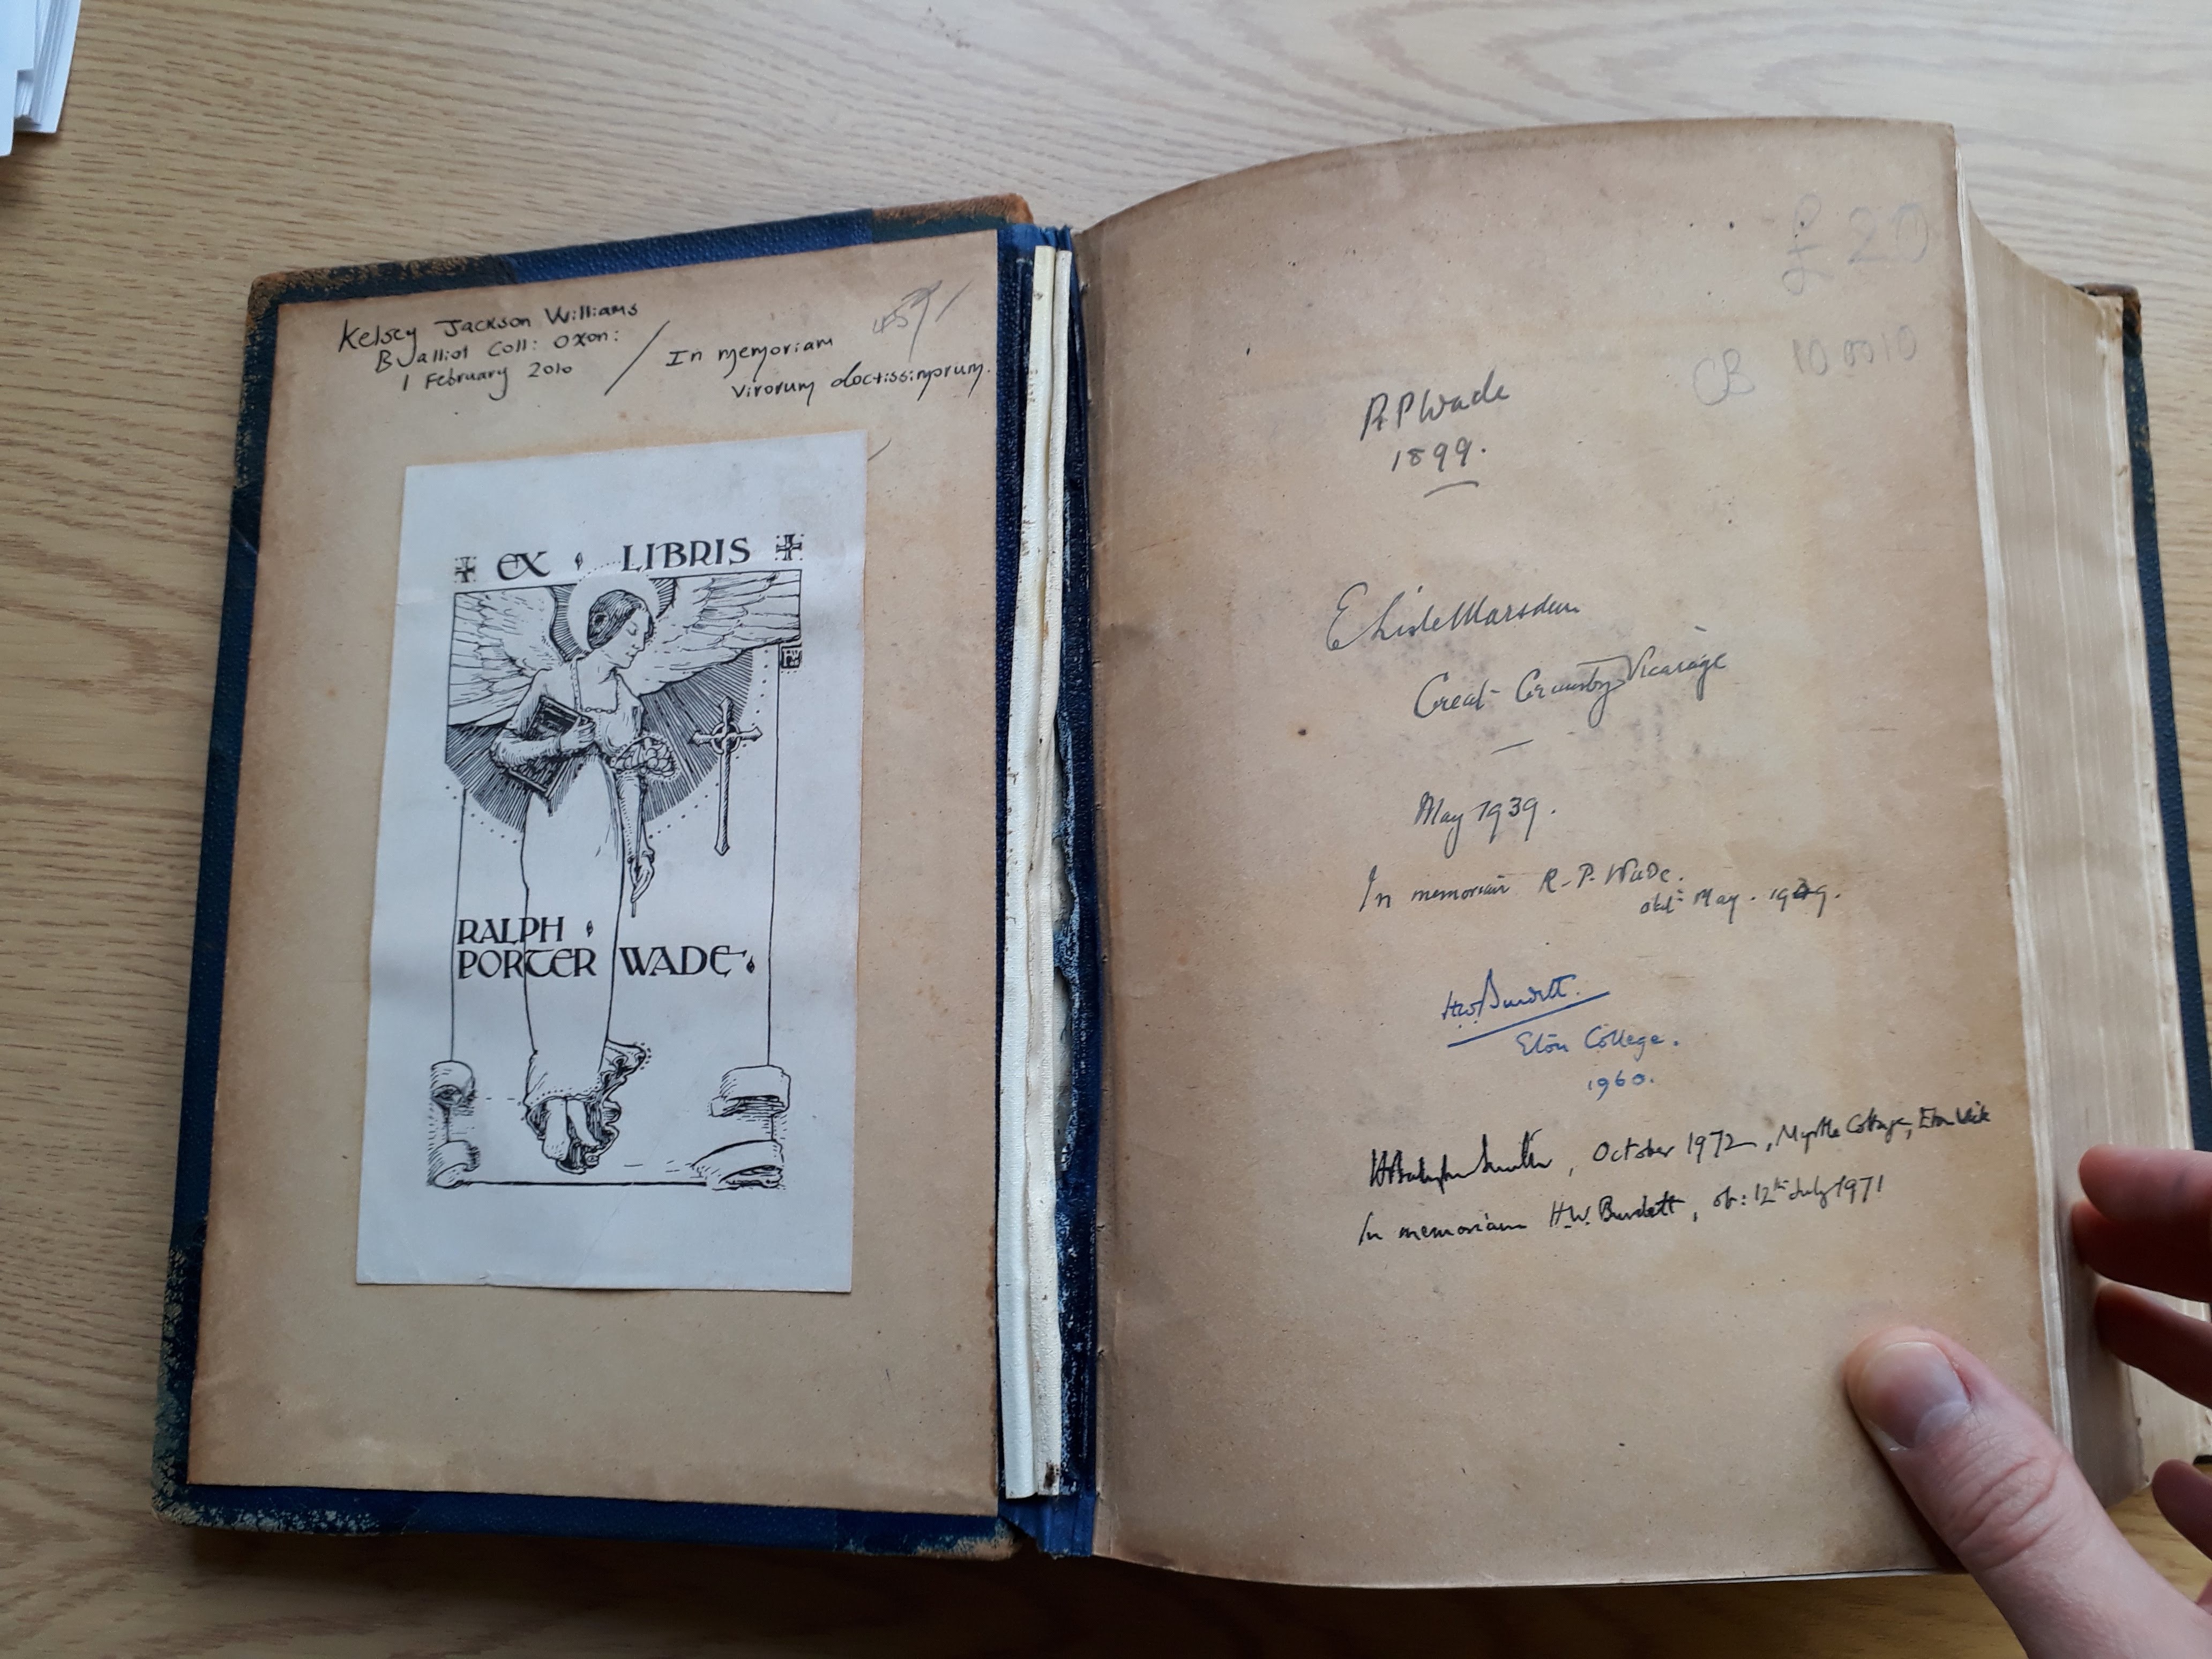 Kelsey Jackson Williams
Balliol Coll: Oxon:
1 February 2010
/ In memoriam
virorum doctissimorum.
EX LIBRIS
RALPH
PORTER WADE
£20
CB 100010
R P Wade
1899.
E Lisle Marsden
Great Grimsby Vicarage
May 1939.
In memoriam R. P. Wade.
obt May. 1939.
H.W. Burdett.
Eton College.
1960.
Smith, October 1972, Myrtle Cottage, Eton Wick
In memoriam H.W. Burdett, ob: 12th July 1971